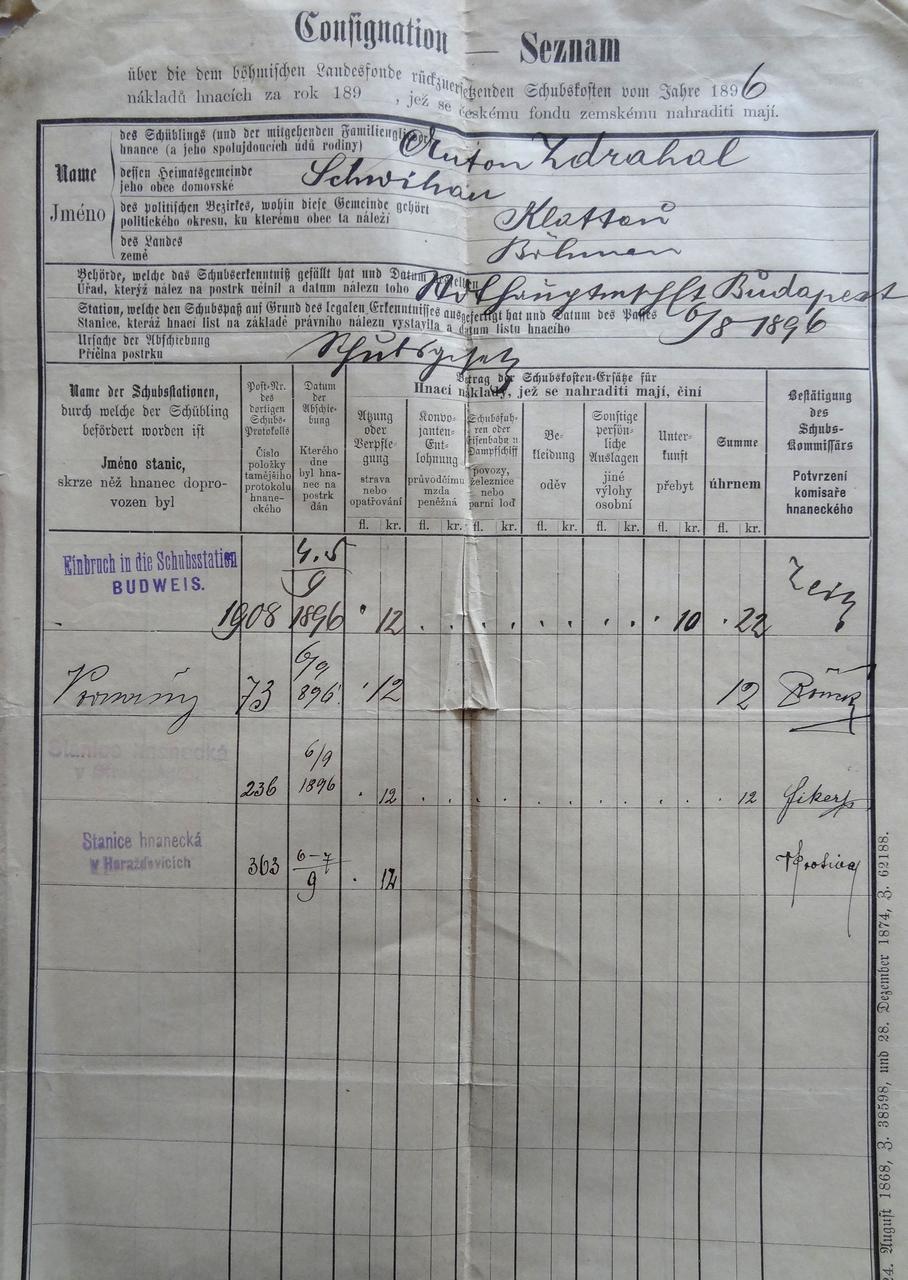 Consignation — Seznam
über die dem böhmischen Landesfonde rückzuersetzenden Schubskosten vom Jahre 1896
nákladů hnacích za rok 189 , jež se českému fondu zemskému nahraditi mají.
Name
Jméno
des Schüblings (und der mitgehenden Familienglieder)
hnance (a jeho spolujdoucích údů rodiny)
Anton Zdrahal
dessen Heimatsgemeinde
jeho obce domovské
Schwihau
des politischen Bezirkes, wohin diese Gemeinde gehört
politického okresu, ku kterému obec ta náleží
Klattau
des Landes
země
Böhmen
Behörde, welche das Schubserkenntniß gefällt hat und Datum desselben
Úřad, kterýž nález na postrk učinil a datum nálezu toho
Budapest
Station, welche den Schubspaß auf Grund des legalen Erkenntnisses ausgefertigt hat und Datum des Passes
Stanice, kteráž hnací list na základě právního nálezu vystavila a datum listu hnacího
6/8 1896
Ursache der Abschiebung
Příčina postrku
Schubsgesetz
Name der Schubsstationen,
durch welche der Schübling
befördert worden ist
Jméno stanic,
skrze něž hnanec dopro-
vozen byl
Post-Nr.
des
dortigen
Schubs-
Protokolls
Číslo
položky
tamějšího
protokolu
hnane-
ckého
Datum
der
Abschie-
bung
Kterého
dne
byl hna-
nec na
postrk
dán
Betrag der Schubskosten-Ersätze für
Hnací náklady, jež se nahraditi mají, činí
Atzung
oder
Verpfle-
gung
strava
nebo
opatřování
fl. kr.
Konvo-
janten-
Ent-
lohnung
průvodčímu
mzda
peněžná
fl. kr.
Schubsfuh-
ren oder
Eisenbahn u.
Dampfschiff
povozy,
železnice
nebo
parní loď
fl. kr.
Be-
kleidung
oděv
fl. kr.
Sonstige
persön-
liche
Auslagen
jiné
výlohy
osobní
fl. kr.
Unter-
kunft
přebyt
fl. kr.
Summe
úhrnem
fl. kr.
Bestätigung
des
Schubs-
Kommissärs
Potvrzení
komisaře
hnaneckého
Einbruch in die Schubsstation
BUDWEIS.
1908
4.5
9
1896
12
10
22
73
6/9
896
12
12
Stanice hnanecká
236
6/9
1896
12
12
Stanice hnanecká
v Horažďovicích
363
6-7
9
12
24. August 1868, Z. 38598, und 28. Dezember 1874, Z. 62188.